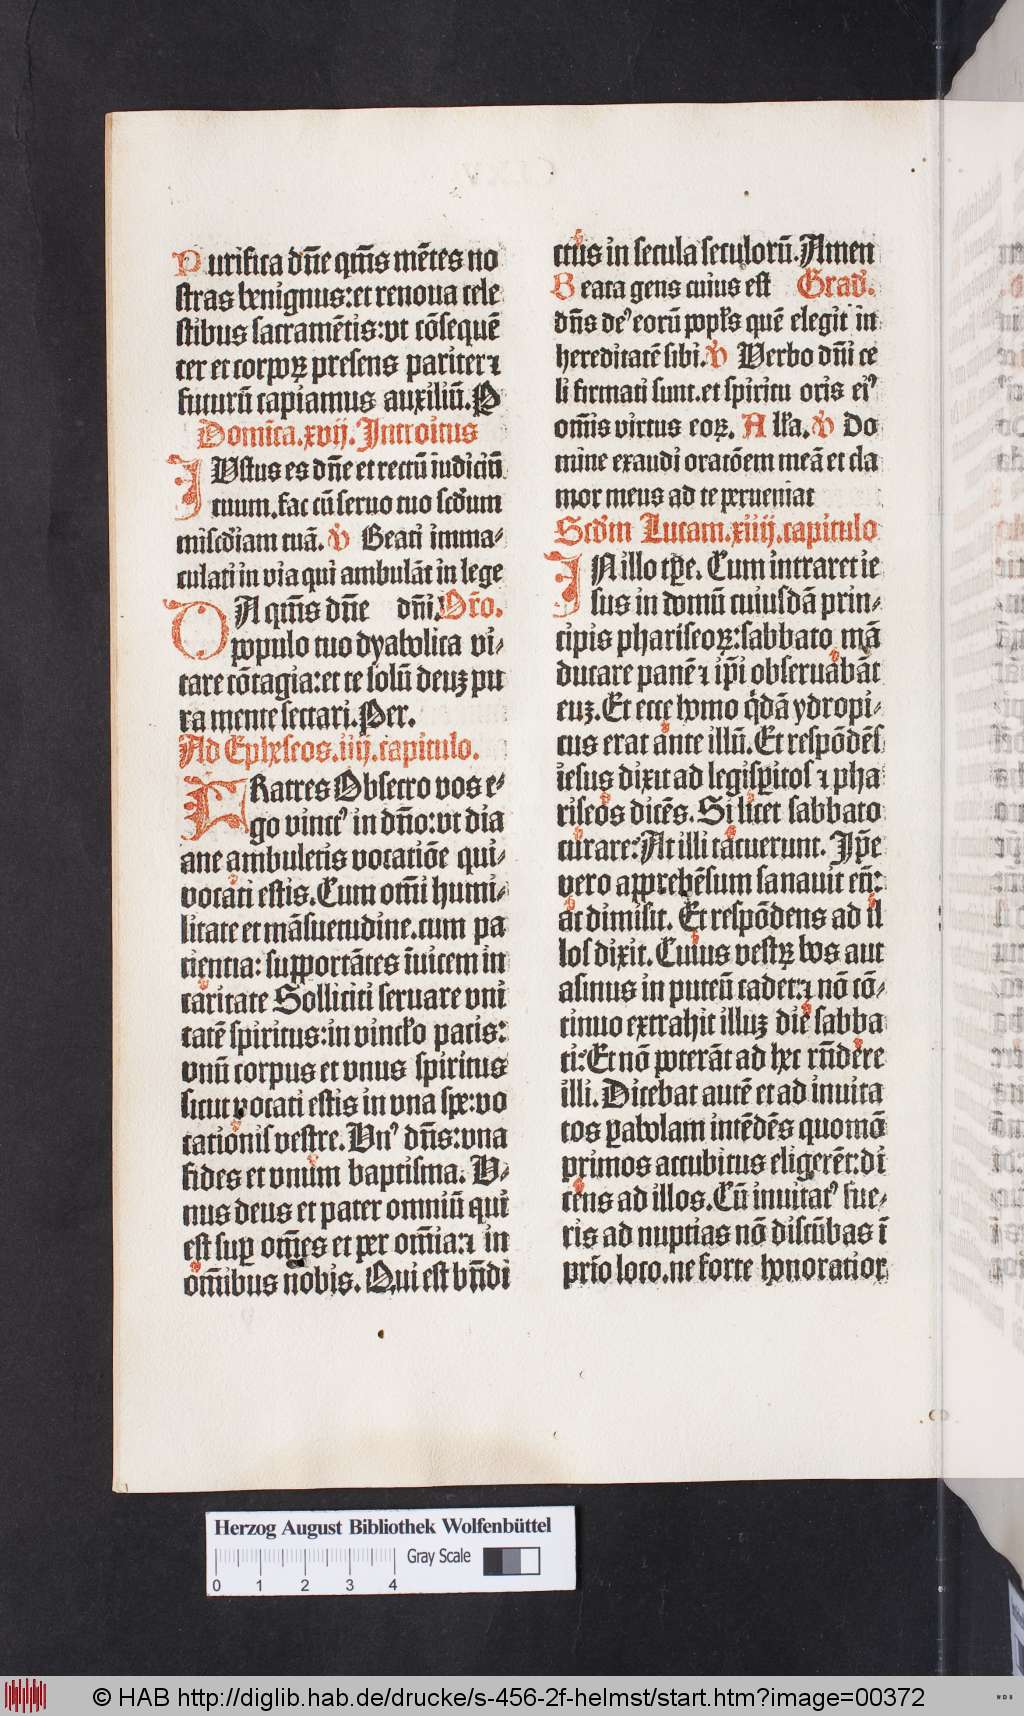 Purifica dn̄e qm̄s mētes no
stras benignus:et renoua cele
stibus sacramētis:vt cōsequē
ter et corpoꝝ presens pariter ⁊
futurū capiamus auxiliū. P
Domīca.xvij. Introitus
IUstus es dn̄e et rectū iudiciū
tuum. fac cū seruo tuo scd̄um
miscd̄iam tuā. ꝟ Beati imma⸗
culati in via qui ambulāt in lege
DA qm̄s dn̄e dn̄i. Or̄o.
populo tuo dyabolica vi⸗
tare cōtagia:et te solū deuꝫ pu
ra mente sectari. Per.
Ad Ephseos.iiij.capitulo.
FRatres Obsecro vos e⸗
go vinctꝰ in dn̄o:vt dīa
ane ambuletis vocatiōe qui⸗
vocati estis. Cum om̄i humi⸗
litate et māsuetudine. cum pa
cientia: supportātes īuicem in
caritate Solliciti seruare vni
tatē spiritus:in vincl̄o pacis:
vnū corpus et vnus spiritus
sicut vocati estis in vna spe:vo
cationis vestre. Vnꝰ dn̄s:vna
fides et vnum baptisma. V⸗
nus deus et pater omniū qui
est suꝑ om̄es et per om̄ia:⁊ in
om̄ibus nobis. Qui est bn̄di
ctus in secula seculorū. Amen
Beata gens cuius est Grad̄.
dn̄s deꝰ eorū popl̄s quē elegit in
hereditatē sibi. ꝟ Verbo dn̄i ce
li firmati sunt. et spiritu oris eiꝰ
om̄is virtus eoꝝ. Alla. ꝟ Do
mine exaudi oratōem meā et cla
mor meus ad te perueniat
Scd̄m Lucam.xiiij.capitulo
IN illo tꝑe. Cum intraret ie
sus in domū cuiusdā prin⸗
cipis phariseoꝝ:sabbato mā
ducare panē ⁊ ip̄i obseruabāt
euꝫ. Et ecce homo qdā ydropi⸗
cus erat ante illū. Et respōdēs
iesus dixit ad legisꝑitos ⁊ pha
riseos dicēs. Si licet sabbato
curare? At illi tacuerunt. Ip̄e
vero apprehēsum sanauit eū:
ac dimisit. Et respōdens ad il
los dixit. Cuius vestꝝ bos aut
asinus in puteū cadet:⁊ nō cō⸗
tinuo extrahit illuꝫ die sabba
ti? Et nō poterāt ad hec rn̄dere
illi. Dicebat autē et ad inuita
tos ꝑabolam intēdēs quomō
primos accubitus eligerēt:di
cens ad illos. Cū inuitatꝰ fue⸗
ris ad nuptias nō discūbas ī
prīo loco. ne forte honoratior
Herzog August Bibliothek Wolfenbüttel
Gray Scale
0 1 2 3 4
© HAB http://diglib.hab.de/drucke/s-456-2f-helmst/start.htm?image=00372